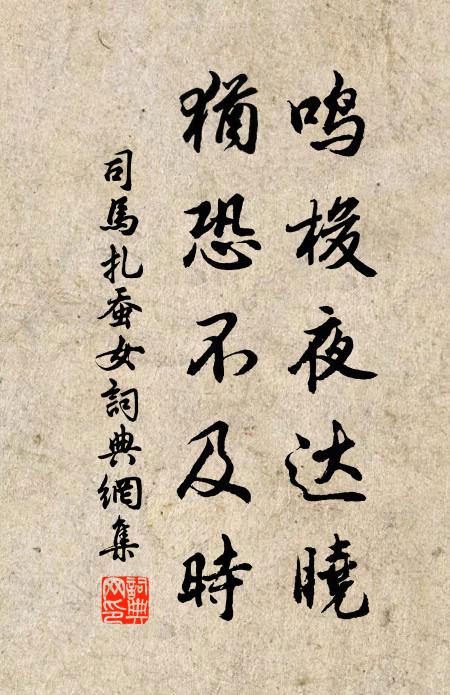 鸣梭夜达曉
猶恐不及時
司馬扎蚕女詞典網集